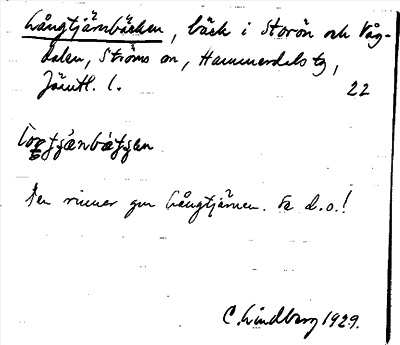 Långtjärnbäcken, bäck i Storön och Våg-
dalen, Ströms sn, Hammerdals tg,
Jämtl. l.
22
Den rinner gm Långtjärnen. Se d.o.!
C. Lindberg 1929.